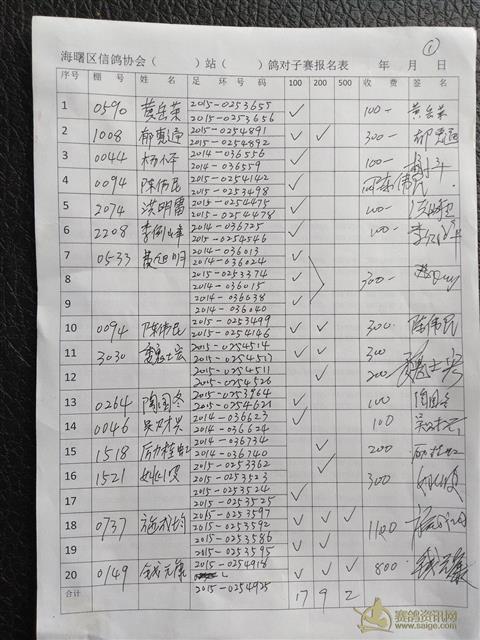 ①
海曙区信鸽协会（ ）站（ ）鸽对子赛报名表 年 月 日
序号 棚 号 姓 名 足 环 号 码 100 200 500 收 费 签 名
1 0590 黄岳荣 2015-0253655 ✓ 100- 黄岳荣
2015-0253656
2 1008 郁惠 2015-0254891 ✓ ✓ 300- 郁惠
2015-0254892
3 0044 2014-036556 ✓ 100-
2014-036559
4 0094 陈伟民 2015-0254142 ✓ 陈伟民
2015-0253498
5 2074 洪明雷 2015-0254475 ✓ 100-
2015-0254478
6 2208 李 2014-036725 ✓ 100-
2015-0254546
7 0533 黄旭明 2014-036013 ✓
2014-036024
8 2015-0253374 ✓ 300-
2014-036015
9 2014-036038 ✓
2014-036040
10 0094 陈伟民 2015-0253499 ✓ ✓ 300 陈伟民
2015-0254146
11 3030 魏士宏 2015-0254514 ✓ ✓ 300
2015-0254517
12 2015-0254511 ✓ 200
2015-0254526
13 0264 陶国冬 2015-0253964 ✓ 100 陶国冬
2015-0254621
14 0046 吴 2014-036623 ✓ 100 吴
2014-036624
15 1518 2014-036734 ✓ 200
2014-036740
16 1521 2015-0253362 ✓ 300
2015-0253523
17 2015-0253524 ✓
2015-0253525
18 0737 施 2015-0253597 ✓ ✓ ✓ 1100
2015-0253592
19 2015-0253586 ✓ ✓
2015-0253595
20 0149 钱元康 2015-0254918 ✓ ✓ ✓ 800 钱元康
合计 2015-0254925 17 9 2
赛鸽资讯网
www.saige.com